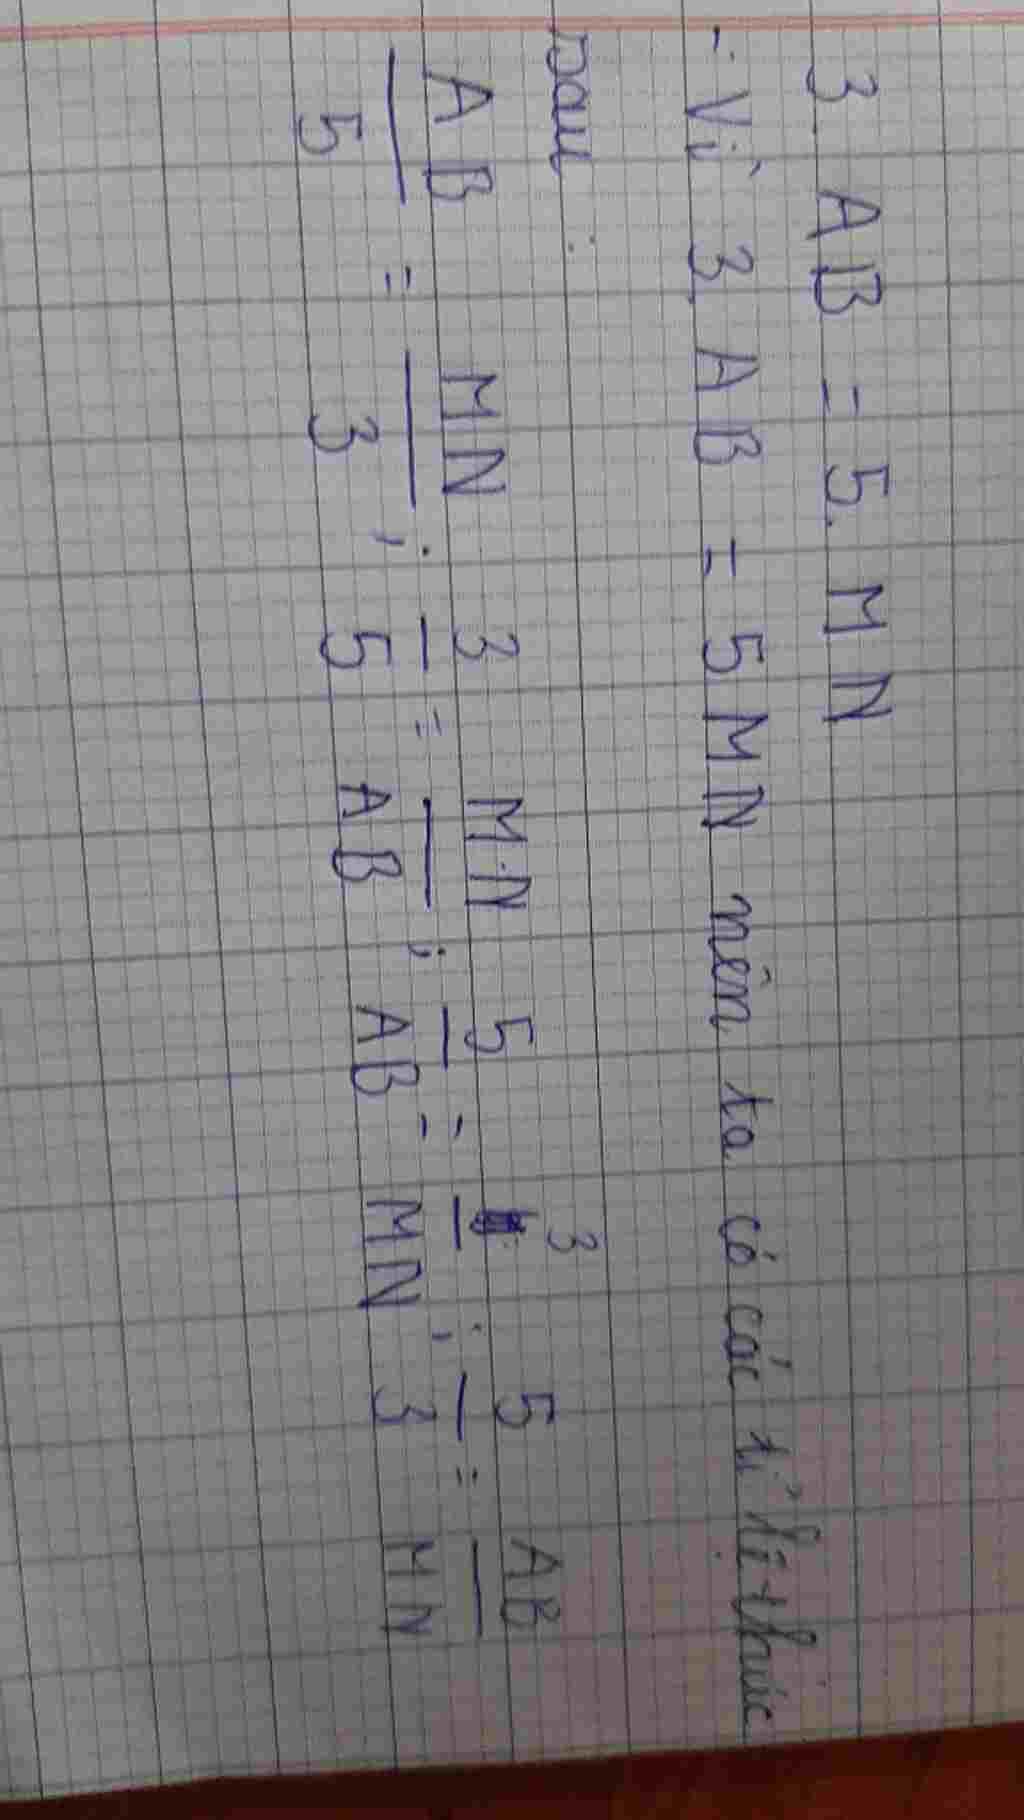 3. AB = 5. MN
- Vì 3. AB = 5 MN nên ta có các tỉ lệ thức
sau :
AB/5 = MN/3 ; 3/5 = MN/AB ; 5/AB = 3/MN ; 5/3 = AB/MN